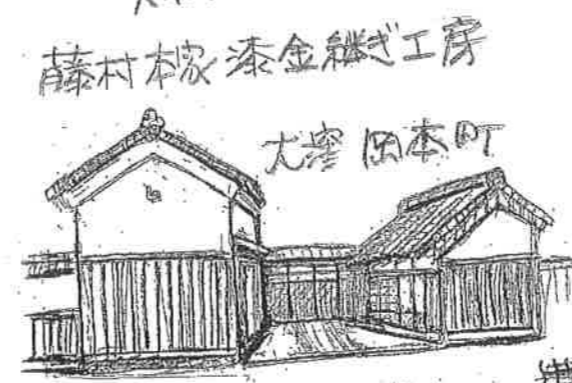 藤村本家 漆金継ぎ工房
大窪 岡本町